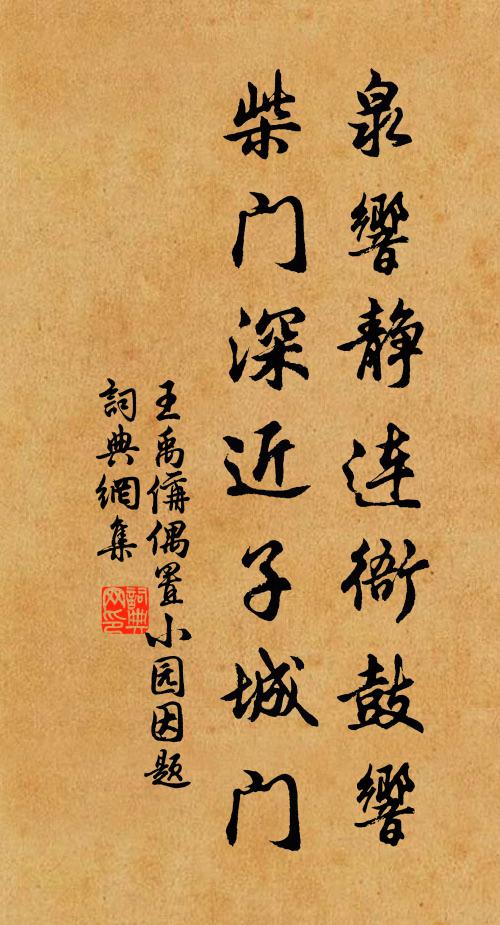 泉響静连衙鼓響
柴门深近子城门
王禹偁偶置小园因题
詞典網集
詞典网印